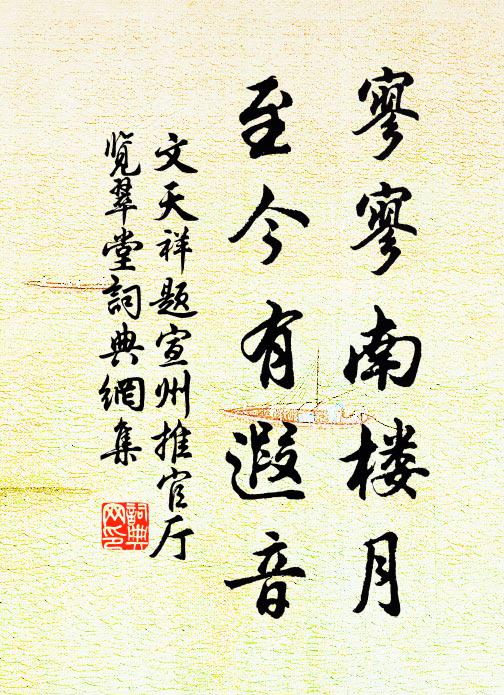 寥寥南楼月
至今有遐音
文天祥题宣州推官厅
览翠堂詞典網集
詞典网印